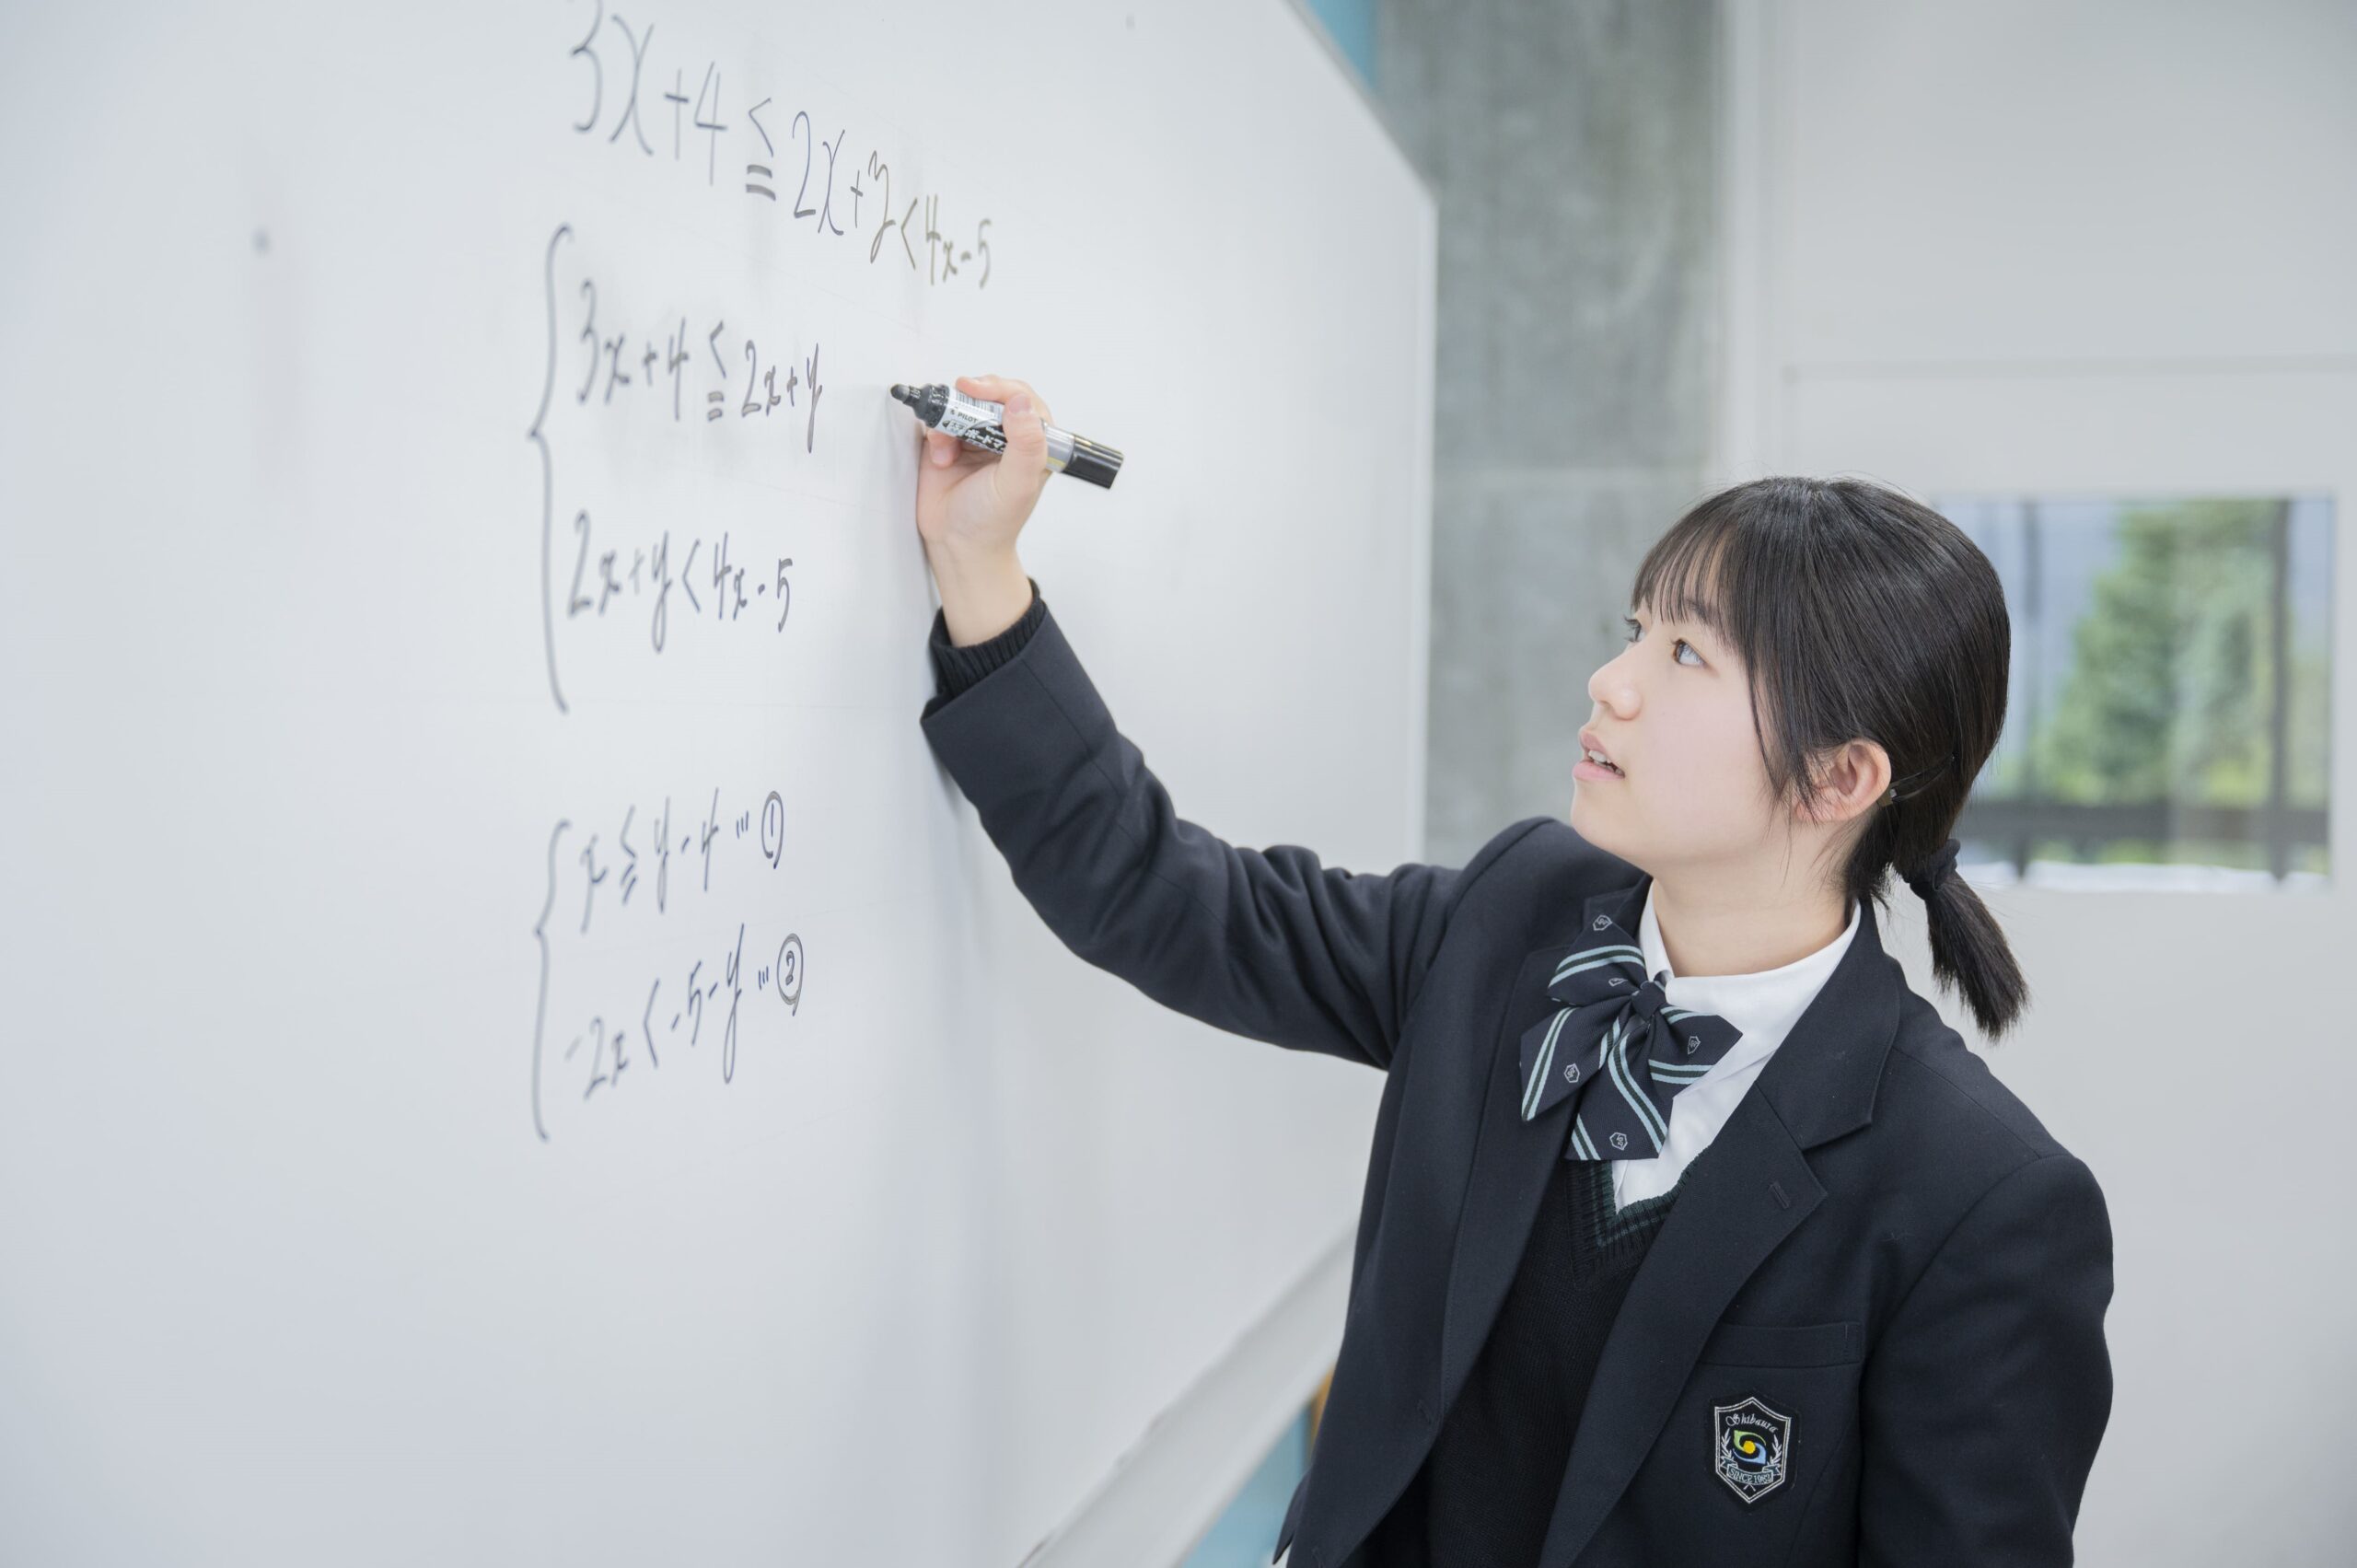 3x+4≦2x+y<4x-5
3x+4≦2x+y
2x+y<4x-5
x≦y-4 …①
-2x<-5-y …②
PILOT
ボードマ
Shibaura
SINCE 1982